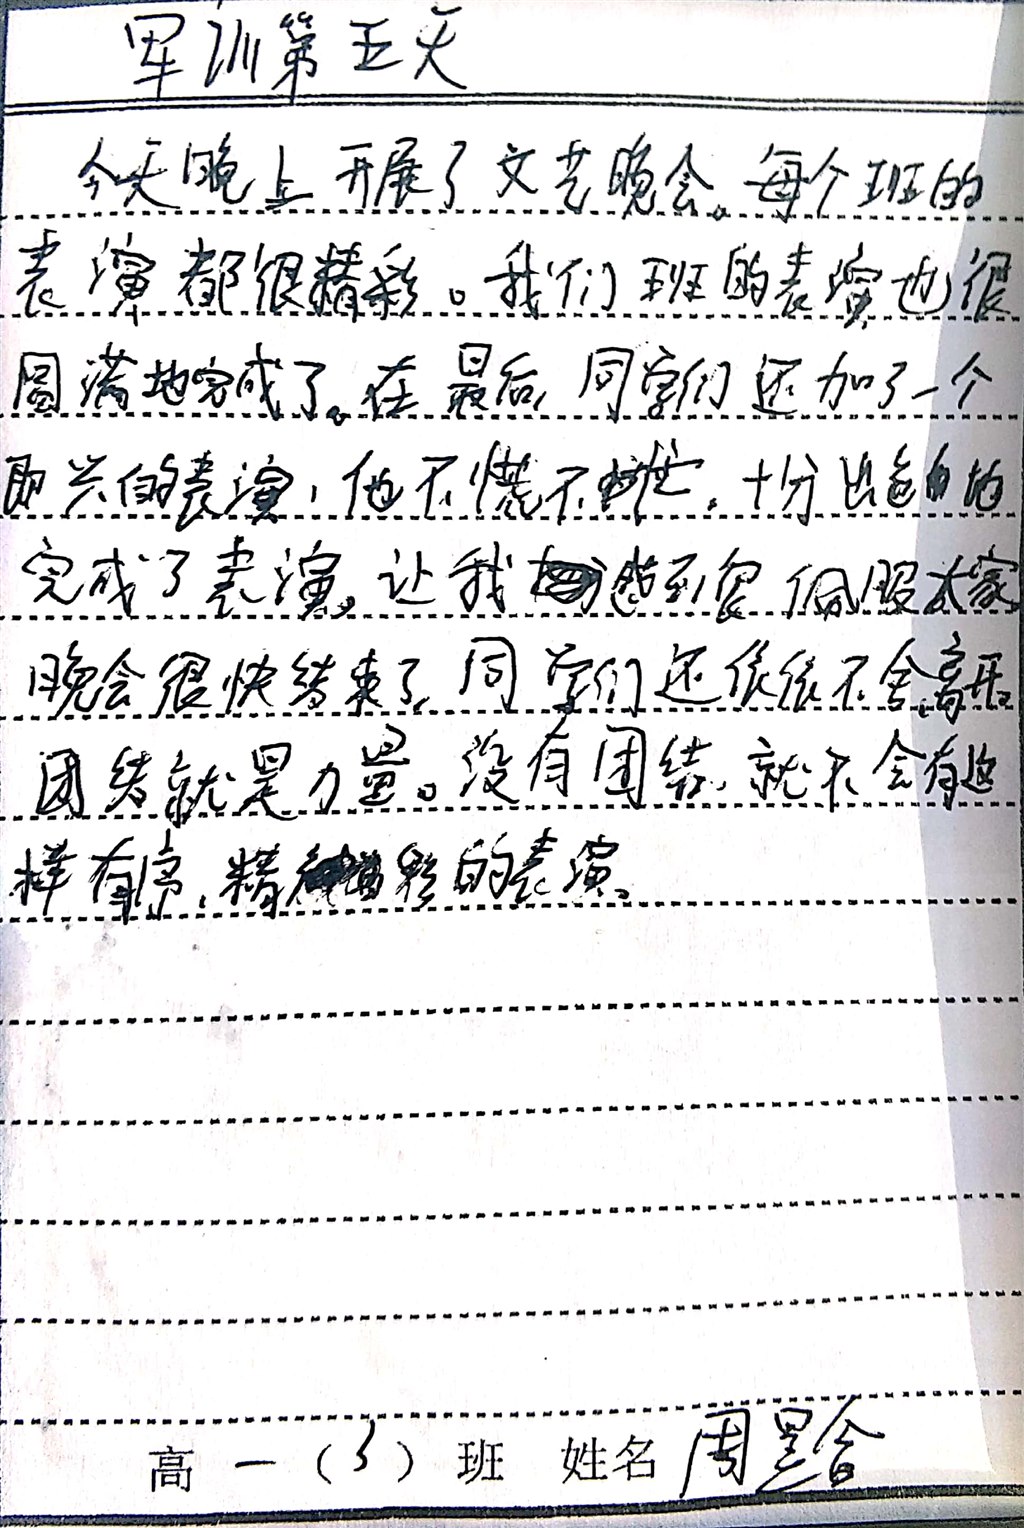 军训第五天
今天晚上开展了文艺晚会。每个班的
表演都很精彩。我们班的表演也很
圆满地完成了。在最后,同学们还加了一个
即兴的表演,他不慌不忙,十分出色的
完成了表演。让我感到很佩服大家。
晚会很快结束了,同学们还依依不舍离开。
团结就是力量。没有团结,就不会有这
样有序、精彩的表演。
高一(3)班 姓名 周